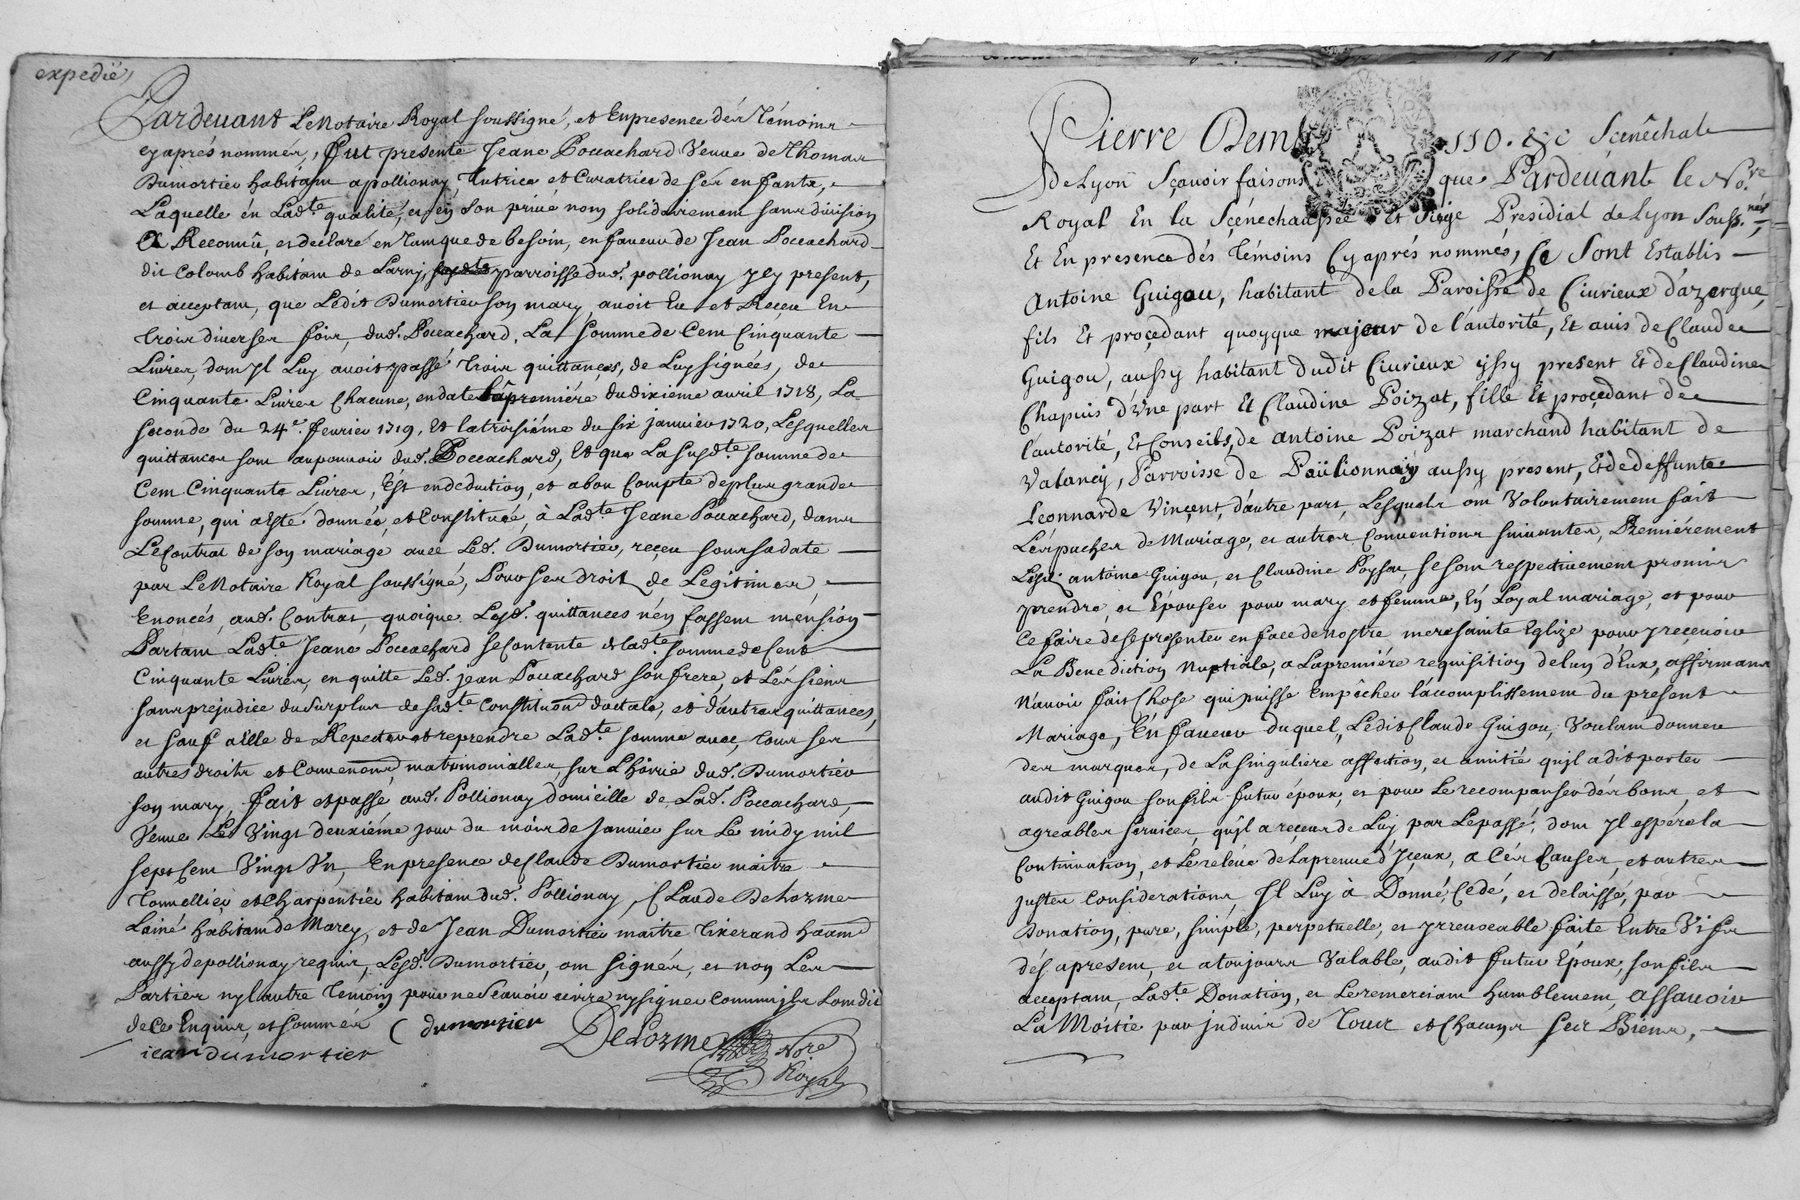 expedié
Pardevant Le Notaire Royal soussigné, et En presence dés Témoins
cy aprés nommés, fut presente Jeane Poccachard Veuve de Thomas
Dumortier habitam a pollionay, Tutrice et Curatrice de ses enfants,
Laquelle én Lad.te qualité, et en son privé nom solidairement sans division
A Reconnû, et declaré en tamque de besoin, en faveur de Jean Poccachard
dit Colomb habitam de Larny, parroisse dud. pollionay y ley present,
et acceptam, que Ledit Dumortier son mary, avoit Eu et Reçeu En
trois diverses fois, dud. Poccachard, La somme de Cem Cinquante
Livres, dom yl Luy avoit passé trois quittançes, de Luy signées, de
Cinquante Livres Chacune, en date La premiére du dixieme avril 1718, La
seconde du 24e. fevrier 1719, Et la troisiéme du six janvier 1720, Lesquelles
quittances som au pouvoir dud. Poccachard, Et que La susd.te somme de
Cem Cinquante Livres, Est en deduction, et a bon Compte de plus grande
somme, qui a esté donnée, et Constituée, à Lad.te Jeane Poccachard, dans
Le Contrat de son mariage avec Led. Dumortier, reçeu sous sa date
par Le Notaire Royal soussigné, Pour ses droits de Legitimes,
Enoncés, aud. Contrat, quoique Lesd. quittances n'en fassem mension
Partam Lad.te Jeane Poccachard se Contente de Lad.te somme de Cent
Cinquante Livres, en quitte Led. jean Poccachard son frere, et Lés siens
sans prejudice du surplus de sad.te Constituon doctale, et d'autres quittances,
et sauf a Elle de Repecter et reprendre Lad.te somme avec, tous ses
autres droits et Convenons matrimonialles, sur L'hoirie dud. Dumortier
son mary, fait et passé aud. Pollionay domicille de Lad. Poccachard,
Veuve Le Vingt deuxiéme jour du mois de Janvier sur Le midy mil
sept Cem Vingt Un, En presence de Claude Dumortier maitre
Tonnellier et Charpentier habitam dud. Pollionay, Claude Delorme
Lainé habitam de Marcy, et de Jean Dumortier maitre Tixerand
aussy de pollionay requis, Lesd. Dumortier, om signés, et non Les
Parties ny L'autre temoin pour ne sçavoir écrire ny signer Comm'ils Lom dit
de Ce Enquis, et sommés
C dumortier
Delorme
iean dumortier
No.re
Royal
Pierre Dem
110. &c Sçenêchal
de Lyon Sçavoir faisons que Pardevant le No.re
Royal En la Sçénechaussée Et Siége Presidial de Lyon Souss.né
Et En presence dés témoins Cy aprés nommés, se Sont Establis
Antoine Guigou, habitant de la Paroisse de Civrieux d'azergue,
fils Et proçedant quoyque majeur de l'autorité, Et avis de Claude
Guigou, aussy habitant dudit Civrieux yssy present Et de Claudine
Chapuis d'Une part Et Claudine Poizat, fille Et proçedant de
l'autorité, Et Conseils, de antoine Poizat marchand habitant de
Valancy, Parroisse de Paülionnay aussy present, Et de deffunte
Leonnarde Vinçent, d'autre part, Lesquels om Volontairement fait
Lés paches de Mariage, et autres Conventions suivantes, Premiérement
Lesd. antoine Guigou, et Claudine Poyssat, se som respectivement promis
prendre, et Epouser pour mary et femme, En Loyal mariage, et pour
Ce faire de se presenter en face de nostre mere sainte Eglize pour y recevoir
La Benediction Nuptiale, a La premiére requisition de lun d'Eux, affirmans
N'avoir fait Chose qui puisse Empêcher l'accomplissement du present
Mariage, En faveur duquel, Ledit Claude Guigou, Voulam donner
des marques, de La singuliere affection, et amitié qu'yl a dit porter
audit Guigou son fils futur époux, et pour Le recompenser dés bons, et
agreables services, qu'yl a reçeus de Luy par Le passé, dom yl espére la
Continuation, et Le releve de La preuve d'yceux, a Cés Causes, et autres
justes Considerations, Jl Luy à Donné, Cedé, et delaissé, par
Donation, pure, simple, perpetuelle, et yrrevocable faite Entre Vifs
dés apresent, et a toujours Valable, audit futur Epoux, son fils
acceptam, Lad.te Donation, et Le remerciam humblement, assavoir
La Moitié par jndivis de Tous et Chacuns ses Biens,